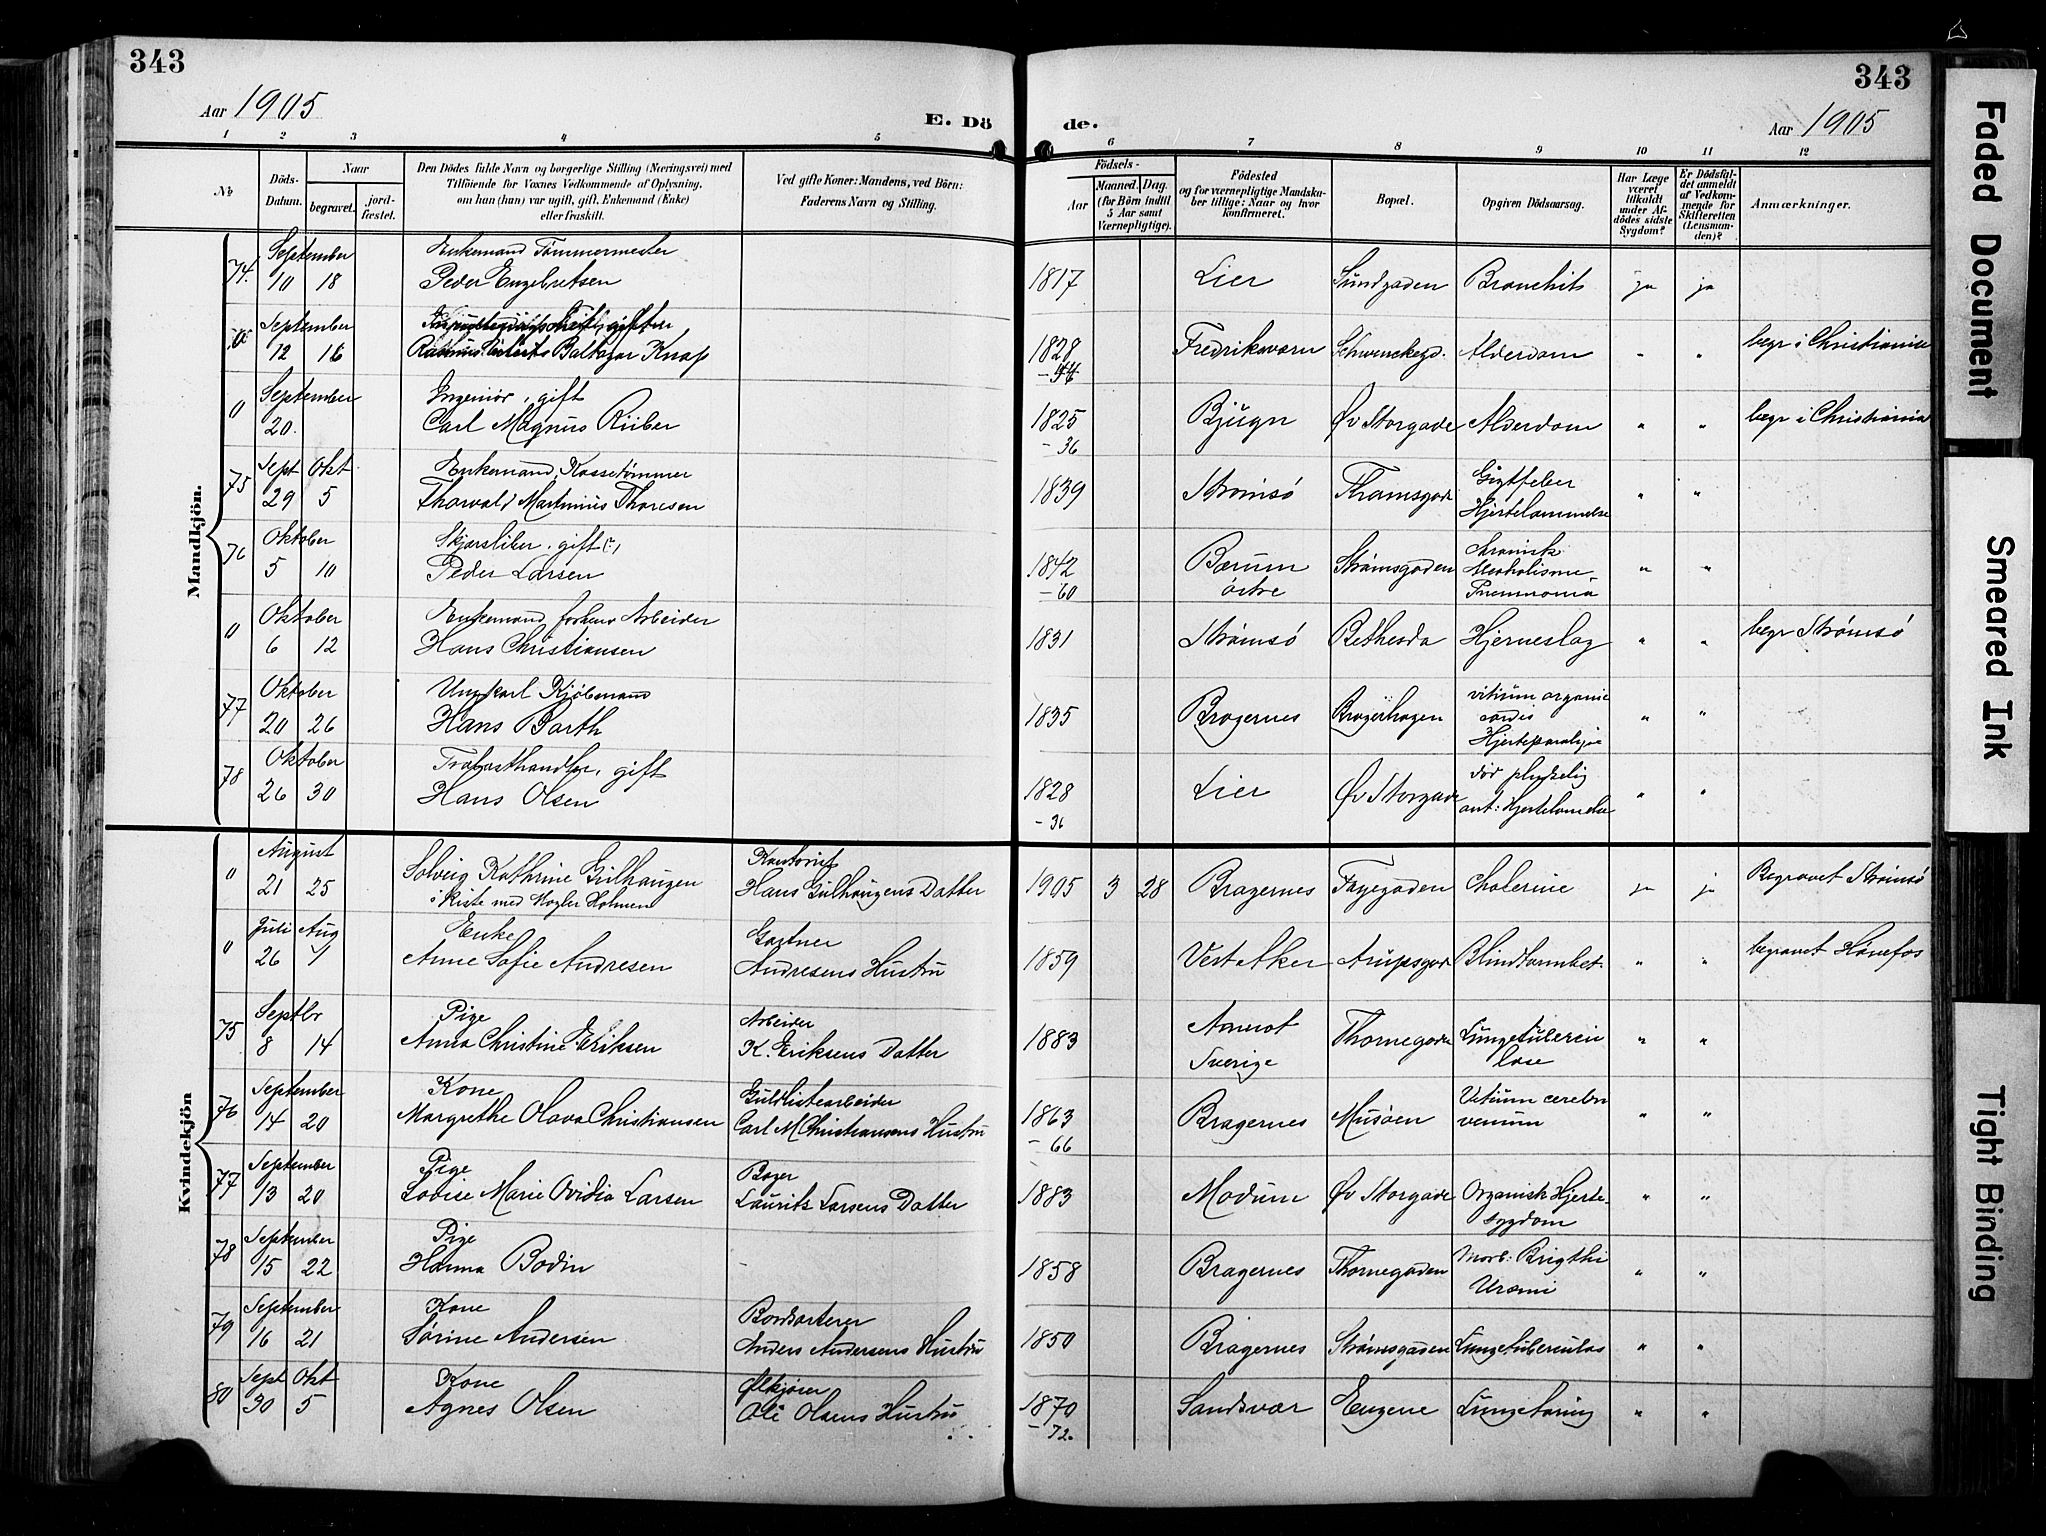 343
343
Aar 1905
E. Dö
de.
Aar 1905
1 2 3 4 5 6 7 8 9 10 11 12
No
Döds-Datum.
Naar
begravet.
jord-fæstet.
Den Dödes fulde Navn og borgerlige Stilling (Næringsvei) med
Tilföiende for Voxnes Vedkommende af Oplysning,
om han (hun) var ugift, gift, Enkemand (Enke)
eller fraskilt.
Ved gifte Koner: Mandens, ved Börn:
Faderens Navn og Stilling.
Födsels-
Aar
Maaned. Dag.
(for Börn indtil
5 Aar samt
Værnepligtige).
Födested
og for værnepligtige Mandska-
ber tillige: Naar og hvor
konfirmeret.
Bopæl.
Opgiven Dödsaarsag.
Har Læge
været
tilkaldt
under Af-
dödes sidste
Sygdom?
Er Dödsfal-
det anmeldt
af Vedkom-
mende for
Skifteretten
(Lensman-
den)?
Anmærkninger.
Mandkjön.
September Enkemand Tømmermester
74. 10 18 Peder Engebretsen 1817 Lier Sundgaden Bronchit ja ja
September
0 12 16 Baltazar Knap 1828 Fredriksværn Schwenckegd. Alderdom " " begr i Christiania
September Ingeniør, gift
0 20. Carl Magnus Riiber 1825 Bjugn Øv Storgade Alderdom " " begr i Christiania
- 36
Sept Okt Enkemand, Kassetømmer Gigtfeber
75 29 5 Thorvald Martinius Thoresen 1839 Strømsø Thamsgade Hjertelammelse " "
Oktober Skjærsliber, gift (?) chronisk
76 5 10 Peder Larsen 1842 Bærum Strømsgaden Alcoholisme
- 60 østre Pneumonia " "
Oktober Enkemand, forhenv Arbeider
0 6 12 Hans Christiansen 1831 Strømsø Bethesda Hjerneslag " " begr Strømsø
Oktober Ungkarl Kjøbmand vitium organic
77 20 26 Hans Barth 1835 Bragernes Bragerhagen cordis " "
Hjerteparalyse
Oktober Trælasthandler, gift død pludselig
78 26 30 Hans Olsen 1828 Lier Øv Storgade ant: Hjertelamelse " "
- 36
Kvindekjön
August Kontorist
0 21 25 Solveig Kathrine Gulhaugen Hans Gulhaugens Datter 1905 3 28 Bragernes Fayegaden Cholerine ja ja Begravet Strømsø
i kiste med Holmen
Juli Aug Enke Gartner
0 26 1 Anne Sofie Andresen Andresens Hustru 1859 Vest Aker Arupsgad Blindtarmbet. " " begravet Hønefos
Septbr Pige Arbeider
75 8 14 Anna Christine Eriksen K. Eriksens Datter 1883 Sverige Thornegade " "
September Kone Guldlistearbeider
76 14 20 Margrethe Olava Christiansen Carl M Christiansens Hustru 1863 Bragernes Musøen Vitium " "
- 66
September Pige Bager
77 13 20 Lovise Marie Ovidia Larsen Laurits Larsens Datter 1883 Modum Øv Storgade Organisk Hjerte-
sygdom " "
September Pige
78 15 22 Hanna Bodin 1858 Bragernes Thornegaden Morb: Brigthi
Uræmi " "
September Kone Bordsorterer
79 16 21 Sørine Andersen Anders Andersens Hustru 1850 Bragernes Strømsgaden Lungetuberculos " "
Sept Okt Kone Ølkjører
80 30 5 Agnes Olsen Ole Olsens Hustru 1870 Sandsvær Eugene Lungetæring " "
- 72.
Faded Document
Smeared Ink
Tight Binding